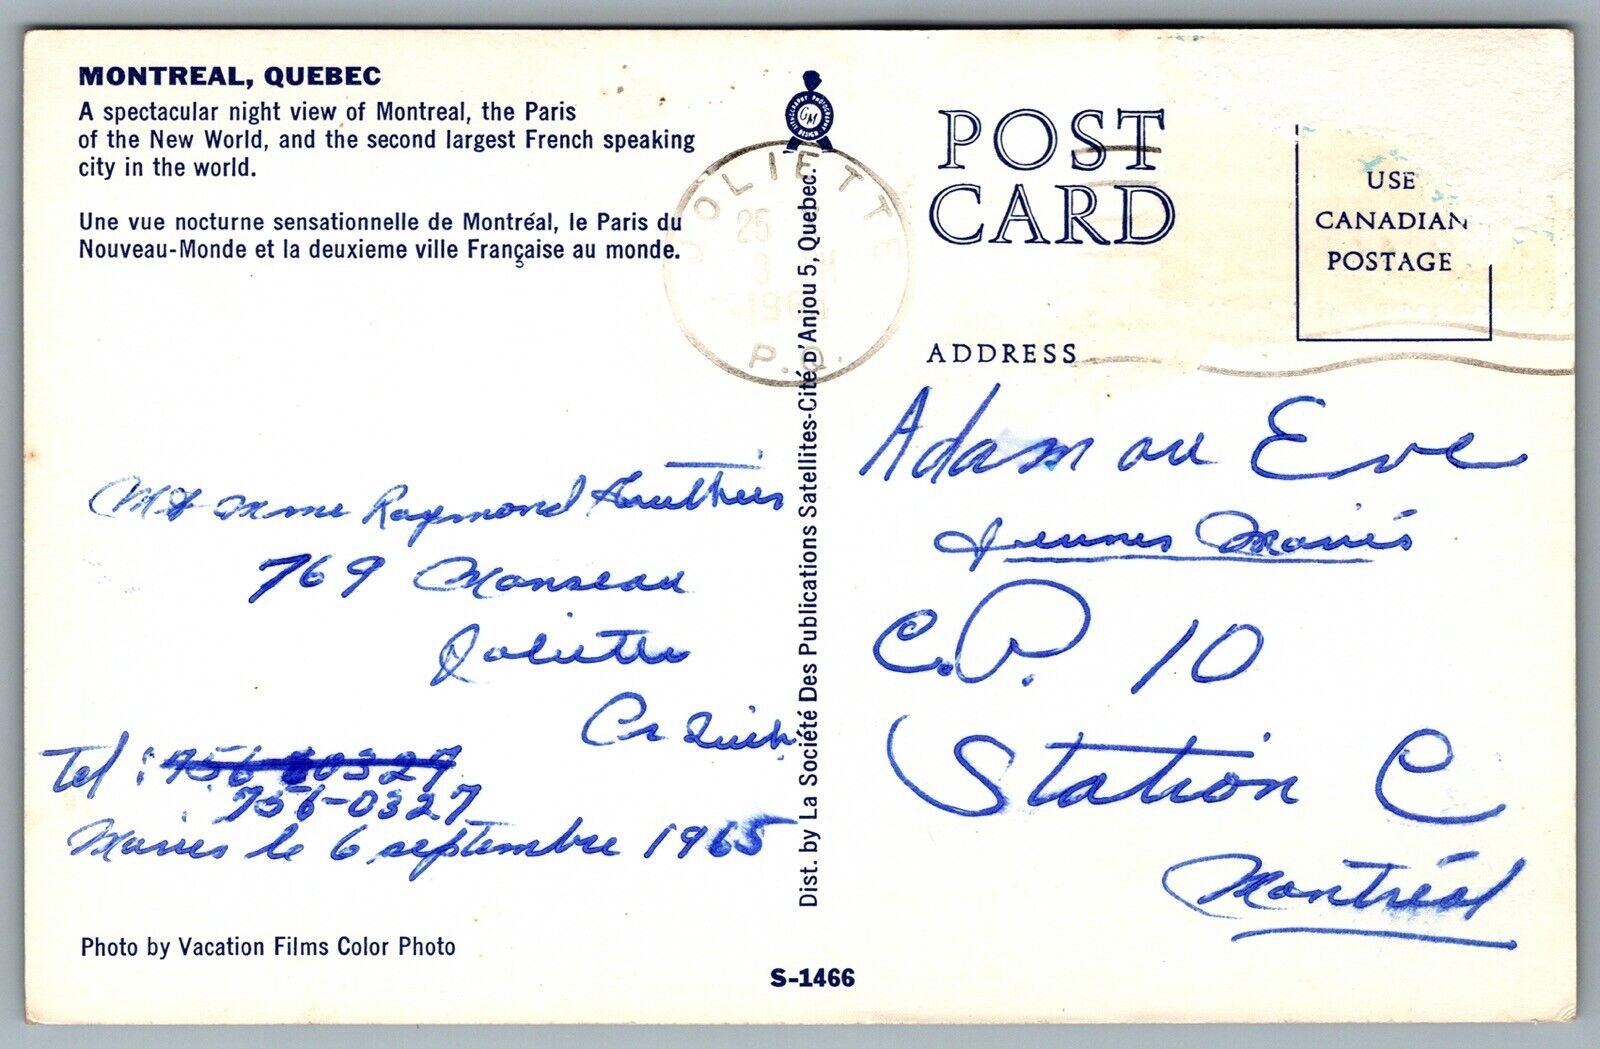 MONTREAL, QUEBEC
A spectacular night view of Montreal, the Paris
of the New World, and the second largest French speaking
city in the world.
Une vue nocturne sensationnelle de Montréal, le Paris du
Nouveau-Monde et la deuxieme ville Française au monde.
M & Mme Raymond Gauthier
769 Manseau
Joliette
Co
Tel : 756 0327
756-0327
Mariés le 6 septembre 1965
Photo by Vacation Films Color Photo
S-1466
Dist. by La Société Des Publications Satellites-Cité D'Anjou 5, Quebec.
LITHOGRAPHY PHOTOGRAPHY DESIGN
GM
JOLIETTE
25
1965
P.Q.
POST
CARD
USE
CANADIAN
POSTAGE
ADDRESS
Adam ou Eve
Jeunes Mariés
C.P. 10
Station C
Montréal